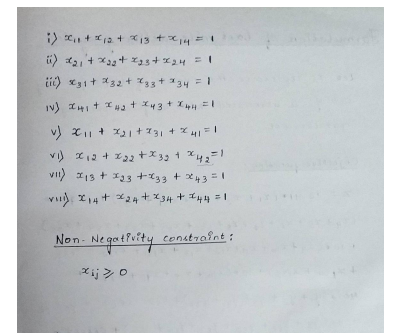 i) x11 + x12 + x13 + x14 = 1
ii) x21 + x22 + x23 + x24 = 1
iii) x31 + x32 + x33 + x34 = 1
iv) x41 + x42 + x43 + x44 = 1
v) x11 + x21 + x31 + x41 = 1
vi) x12 + x22 + x32 + x42 = 1
vii) x13 + x23 + x33 + x43 = 1
viii) x14 + x24 + x34 + x44 = 1
Non-Negativity constraint:
xij ⩾ 0